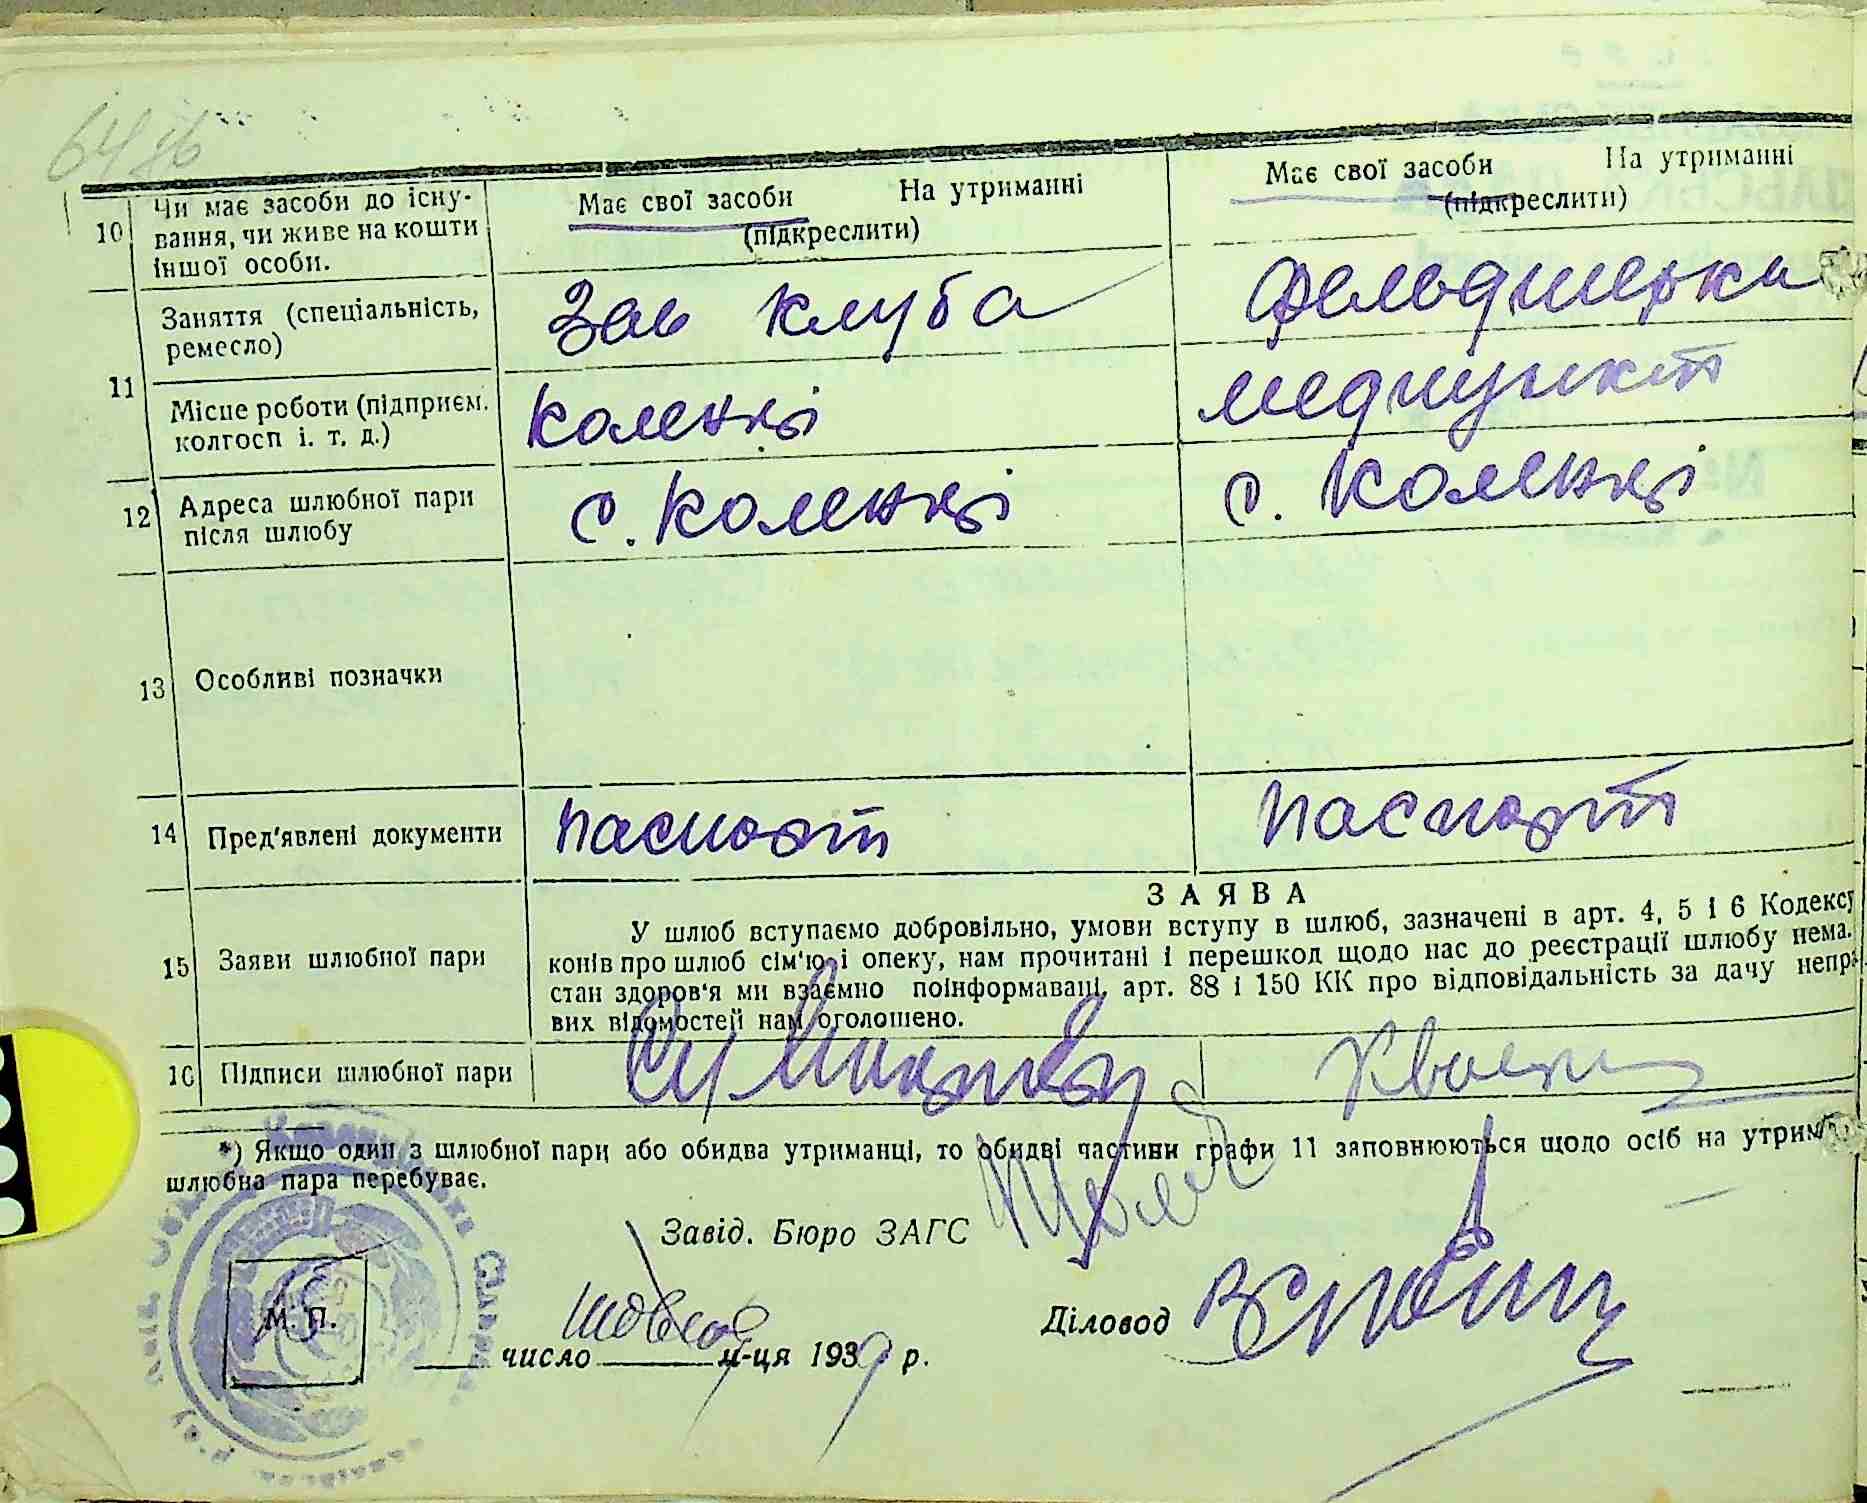 64 зв
10 Чи має засоби до існу-
вання, чи живе на кошти
іншої особи.
Має свої засоби На утриманні
(підкреслити)
Має свої засоби На утриманні
(підкреслити)
11 Заняття (спеціальність,
ремесло)
Зав клуба
Фельдшерка
Місце роботи (підприєм.
колгосп і. т. д.)
Коленці
медпункт
12 Адреса шлюбної пари
після шлюбу
с. Коленці
с. Коленці
13 Особливі позначки
14 Пред'явлені документи
паспорт
паспорт
15 Заяви шлюбної пари
ЗАЯВА
У шлюб вступаємо добровільно, умови вступу в шлюб, зазначені в арт. 4, 5 і 6 Кодексу
конів про шлюб сім'ю і опеку, нам прочитані і перешкод щодо нас до реєстрації шлюбу нема.
стан здоров'я ми взаємно поінформавані, арт. 88 і 150 КК про відповідальність за дачу непра
вих відомостей нам оголошено.
16 Підписи шлюбної пари
*) Якщо один з шлюбної пари або обидва утриманці, то обидві частини графи 11 заповнюються щодо осіб на утрим
шлюбна пара перебуває.
Завід. Бюро ЗАГС
М. П.
Діловод
число м-ця 1939 р.